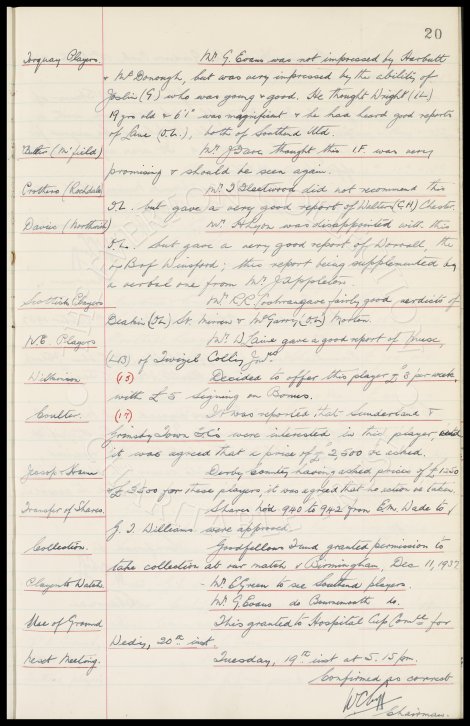 20
Torquay Players. Mr G. Evans was not impressed by Harbutt
& McDonough, but was very impressed by the ability of
Joslin (G) who was young & good. He thought Wright (I.L.)
19 yrs old & 6'1" was magnificent & he had heard good reports
of Lane (O.L.), both of Southend Utd.
(M'field) Mr J Fare thought this I.F. was very
promising & should be seen again.
Crothers (Rochdale) Mr T Fleetwood did not recommend this
F.L. but gave a very good report of Walters (C.H) Chester.
Davies (Northwich) Mr H Lyon was disappointed with this
F.L. but gave a very good report of Worrall, the
of Winsford; this report being supplemented by
a verbal one from Mr J Appleton.
Scottish Players Mr R.C. Cochrane gave fairly good verdicts of
Deakin (O.L) St. Mirren & McGarry (O.L) Morton.
N.E. Players Mr D Caine gave a good report of
(L.B) of Twizel Colliery Jnrs
Wilkinson (13) Decided to offer this player £8 per week,
with £5 signing on Bonus.
Coulter. (17) It was reported that Sunderland &
Grimsby Town F.C's were interested in this player,
it was agreed that a price of £2,500 be asked.
Jessop & Hearne Derby County having asked prices of £1250
& £3500 for these players, it was agreed that no action be taken.
Transfer of Shares. Shares Nos 940 to 942 from E.M. Dade to
G. I. Williams were approved.
Collection. Goodfellows Fund granted permission to
take collection at our match v Birmingham, Dec 11, 1937.
Players to Watch. Mr E Green to see Southend players.
Mr G. Evans do Bournemouth do.
Use of Ground This granted to Hospital Cup Comtee for
Wedy, 20th inst.
Next Meeting. Tuesday, 19th inst at 5.15 pm.
Confirmed as correct
Chairman.